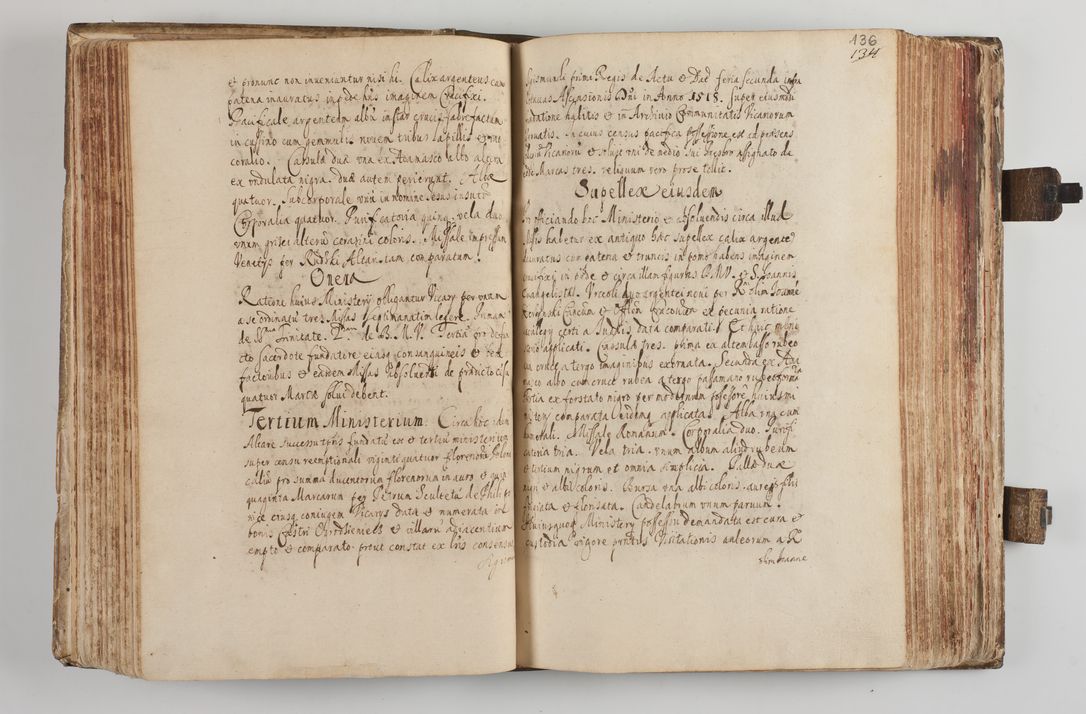 et pronunc non inveniuntur nisi hi. Calix argenteus cum
patena inauratus in pede h̃ns imaginem Crucifixi.
Pacificale argenteum albũ instar crucis fabrefactum
in cussino cum gemmulis novem tribus lapillis et uno
coralio. Casula duæ una ex Adamasco albo altera
ex undulata nigra. duæ autem perierunt. Albæ
quatuor. Subcorporale unũ in nomine Jesus insutũ
Corporalia quatuor. Purificatoria quinq. vela duo
unum grisei alterũ cerasini coloris. Missale impressum
Venetijs per Rudski Altaristam comparatum.
Onera
Ratione huius Ministerij obligantur Vicarij per unum
a se ordinatũ tres Missas septimanatim legere. Primam
de SS. Trinitate. 2dam de B. M. V. Tertiã pro defun
cto Sacerdote fundatore eiusq. consanguineis et bene
factoribus et eædem Missas absolventi de prædicto censu
quatuor Marcæ solui debent.
Tertium Ministerium. Circa hoc idem
Altare successu tpris fundatũ est et tertiũ ministerium
super censu reemptionali viginti quatuor florenorũ Polon
calis pro summa ducentorum florenorum in auro et quin
quaginta Marcarum per Petrum Scultetũ de Philipo
vice eiusq. coniugem Vicarijs data et numerata in
bonis Castri Ogrodzieniecz et villarũ adiacentium
empto et comparato. prout constat ex lris consensus
Sigismu
136
134
Sigismundi primi Regis de Actu et Dat feria secunda infra
Octauas Ascensionis Dñi in Anno 1518. super eiusmodi
notatione habitis et in Archivio Communitatis Vicariorum
seruatis. In cuius census pacifica possessione est ad præsens
Vicariorũ et soluit uni de medio sui presbro assignato de
Marcas tres. reliquum vero pro se tollit.
Supellex eiusdem
In officiando hoc Ministerio et absoluendis circa illud
Missis habetur ex antiquo hæc supellex calix argente9
inauratus cum patena et truncus in pomo habens imaginem
Crucifixi in pede et circa illam figuras B. M. V. et S. Joannis
Euangelistæ. Vrceoli duo argentei noui per Rm̃ olim Joannẽ
et Offlem Cracouien ex pecunia ratione
certi a Judæis data comparati. Et huic mini
sterio applicati. Casulæ tres. prima ex altembasso rubeo
in cruce a tergo imaginibus exornata. Secunda ex Ada
masco albo cum cruce rubea a tergo passamano rubeo
tertia ex forstato nigro per modernum possessorẽ huius mi
nisterij comparata eidemq. applicatæ. Alba una cum
humerali. Missale Romanum. Corporalia duo. Purifi
catoria tria. Vela tria. unum album aliud rubeum
et tertium nigrum et omnia simplicia. Pallæ duæ
nigri et albi coloris. Bursa una albi coloris aureis filis
et florisata. Candelabrum unum paruum.
Huiusq. Ministerij possessori demandata est cura et
custodia vigore prioris Visitationis auleorum a R
olim Joanne